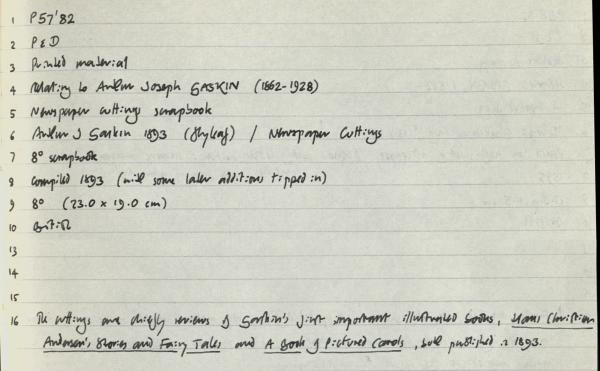 1 P57'82
2 P & D
3 Printed material
4 relating to Arthur Joseph GASKIN (1862-1928)
5 Newspaper cuttings scrapbook
6 Arthur J Gaskin 1893 (flyleaf) / Newspaper Cuttings
7 8° scrapbook
8 compiled 1893 (with some later additions tipped in)
9 8° (23.0 x 19.0 cm)
10 British
13
14
15
16 The cuttings are chiefly reviews of Gaskin's first important illustrated books, Hans Christian
Andersen's Stories and Fairy Tales and A Book of Pictured Carols, both published in 1893.